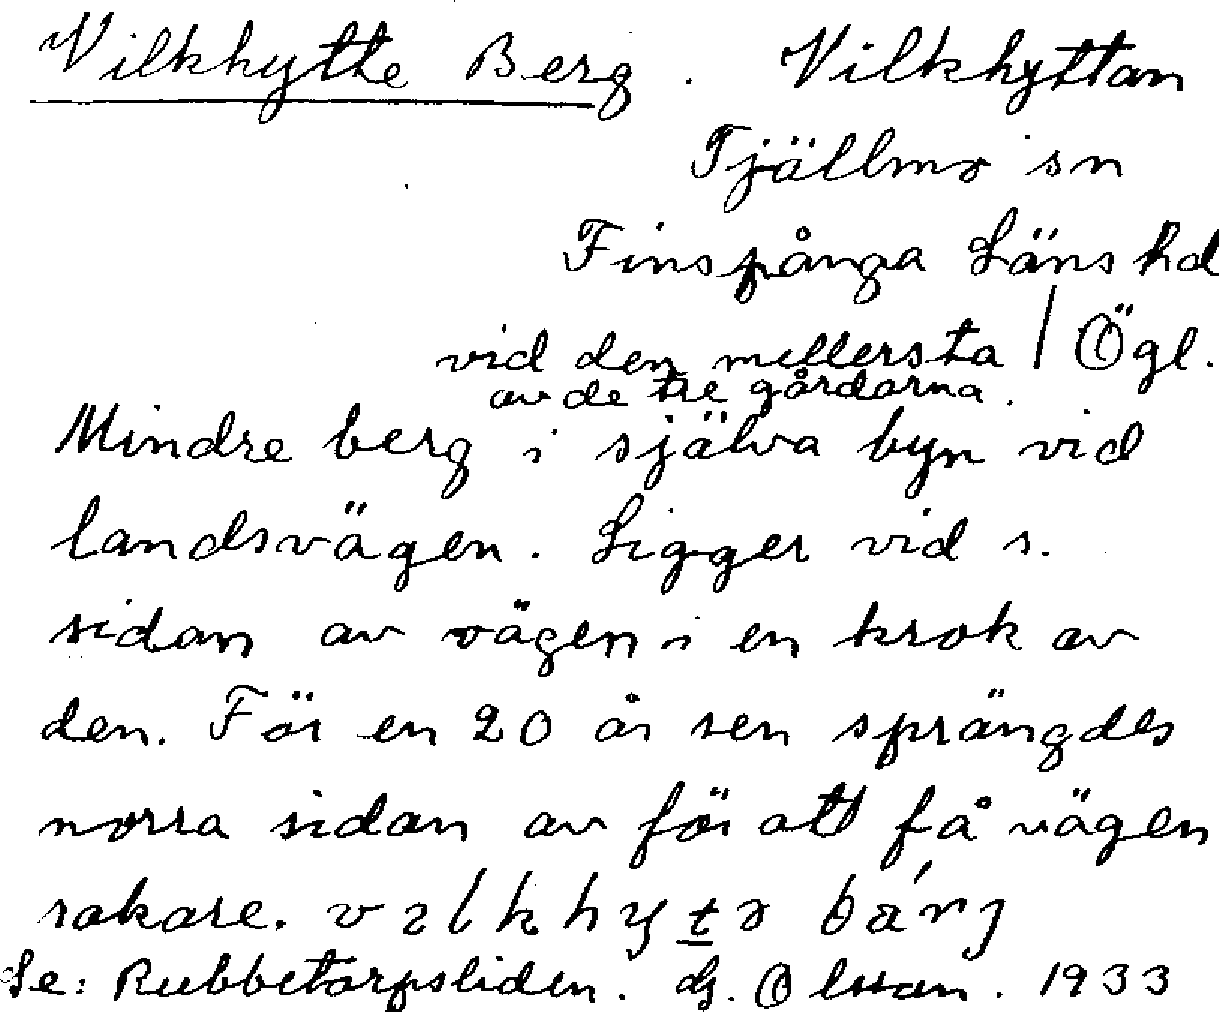 Vilkhytte Berg. Vilkhyttan
Tjällmo sn
Finspånga Läns hd
vid den mellersta / Ögl.
av de tre gårdarna.
Mindre berg i själva byn vid
landsvägen. Ligger vid s.
sidan av vägen i en krok av
den. För en 20 år sen sprängdes
norra sidan av för att få vägen
rakare.
Se: Rubbetorpsliden. G. Olsson. 1933